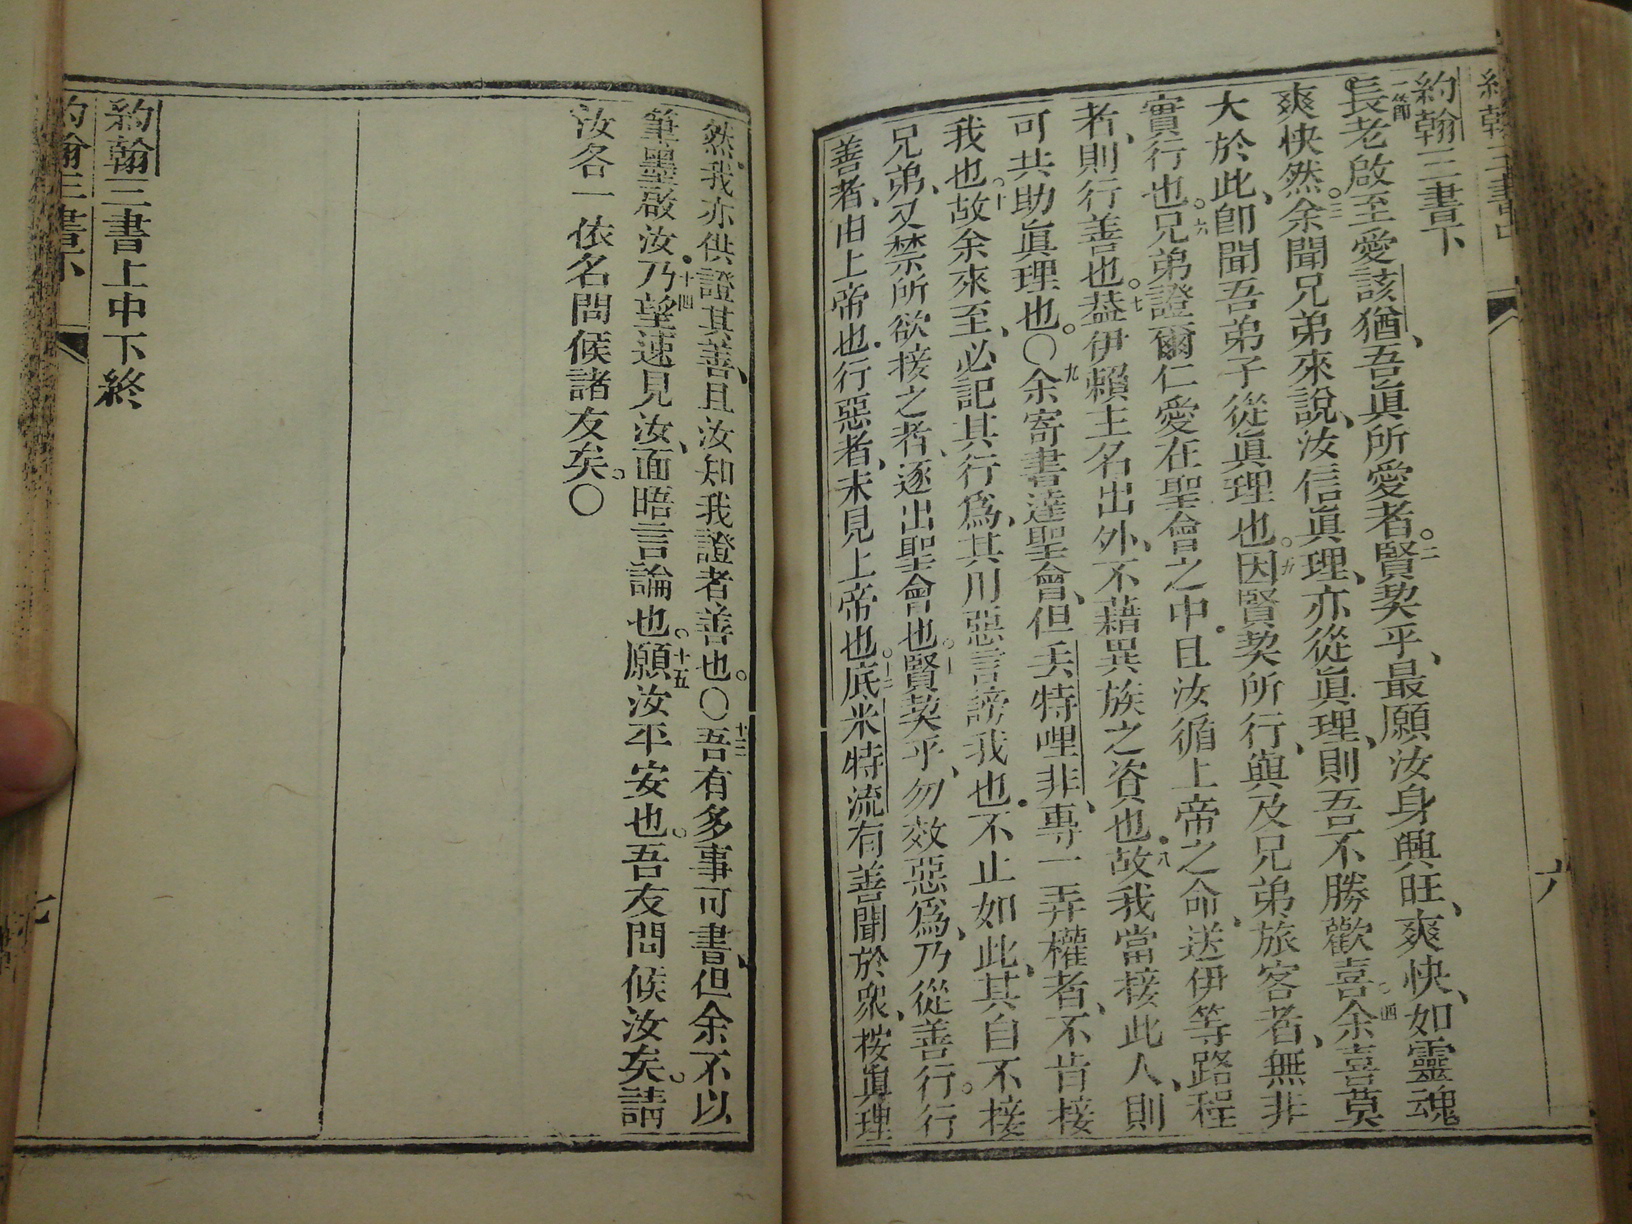 約翰三書下
一節
長老啟至愛該猶、吾眞所愛者。二賢契乎、最願汝身興旺、爽快、如靈魂
爽快然。三余聞兄弟來說、汝信眞理、亦從眞理、則吾不勝歡喜、四余喜莫
大於此、卽聞吾弟子從眞理也。五因賢契所行、與及兄弟旅客者、無非
實行也。六兄弟證爾仁愛在聖會之中、且汝循上帝之命、送伊等路程
者、則行善也。七蓋伊賴主名出外、不藉異族之資也、八故我當接此人、則
可共助眞理也。○九余寄書達聖會、但丢特哩非、專一弄權者、不肯接
我也。十故余來至、必記其行爲、其用惡言謗我也、不止如此、其自不接
兄弟、又禁所欲接之者、逐出聖會也。十一賢契乎、勿效惡爲、乃從善行。行
善者、由上帝也、行惡者、未見上帝也。十二底米特流有善聞於衆、按眞理
然、我亦供證其善、且汝知我證者善也。○十三吾有多事可書、但余不以
筆墨啟汝、十四乃望速見汝、面晤言論也。十五願汝平安也。吾友問候汝矣。請
汝各一依名問候諸友矣。○
約翰三書上中下終
約翰三書下
七